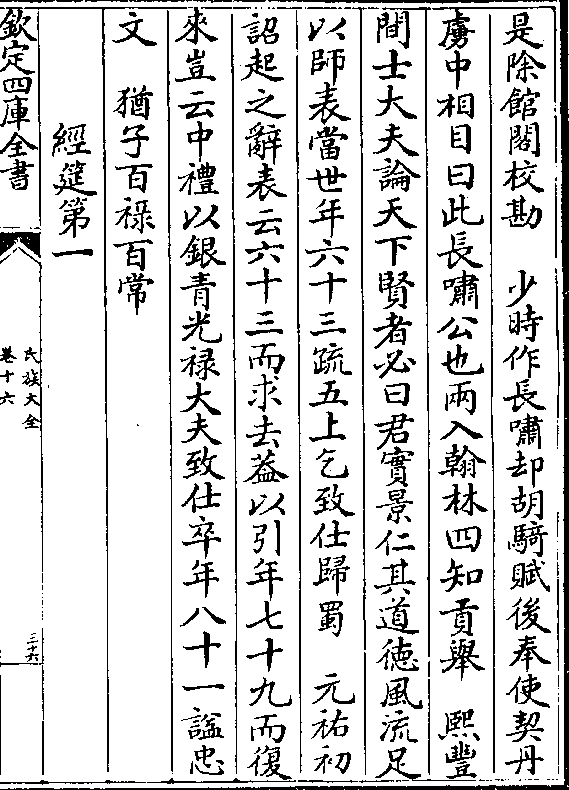 是除館閣校勘　少時作長嘯却胡騎賦後奉使契丹
虜中相目曰此長嘯公也兩入翰林四知貢舉　熙豐
間士大夫論天下賢者必曰君實景仁其道德風流足
以師表當世年六十三疏五上乞致仕歸蜀　元祐初
詔起之辭表云六十三而求去葢以引年七十九而復
來豈云中禮以銀青光禄大夫致仕卒年八十一諡忠
文　猶子百禄百常
經筵第一
欽定四庫全書
氏族大全
卷十六
三十六